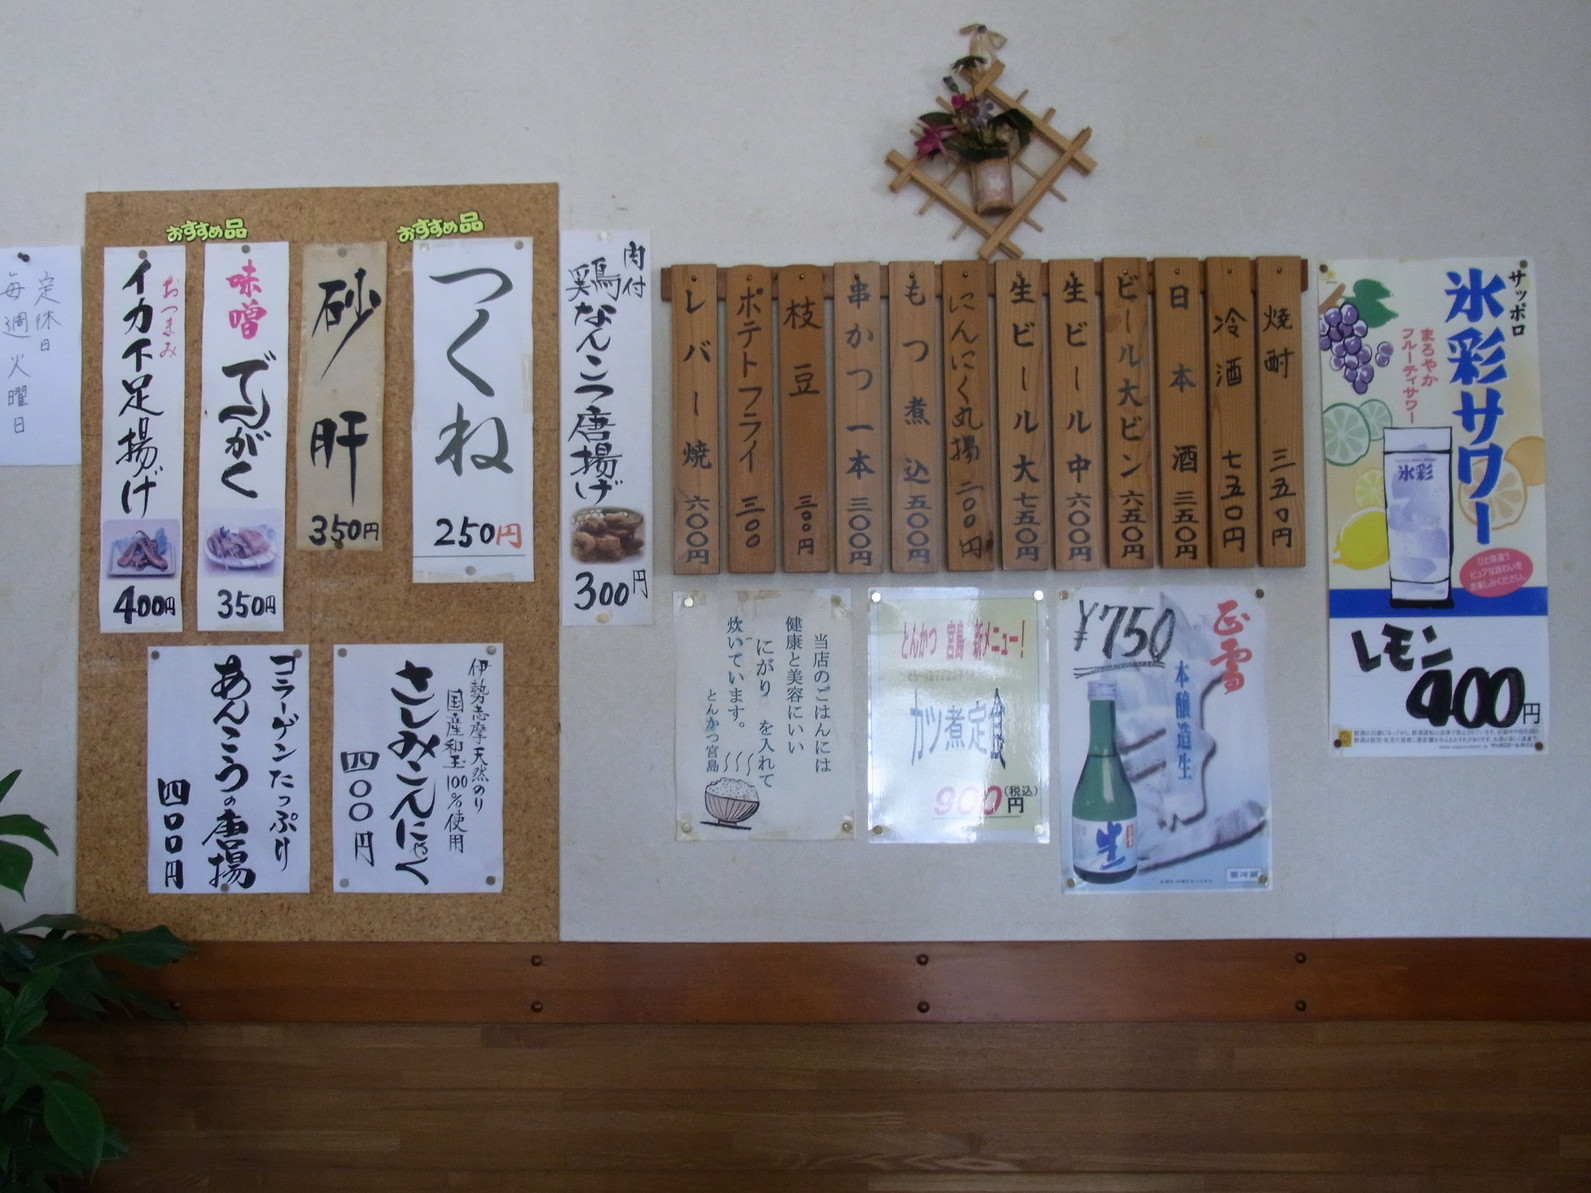 定休日
毎週火曜日
おすすめ品
おすすめ品
おつまみ
イカ下足揚げ
400円
味噌
でんがく
350円
砂肝
350円
つくね
250円
肉付
鶏なんこつ唐揚げ
300円
コラーゲンたっぷり
あんこうの唐揚
四〇〇円
伊勢志摩天然のり
国産和玉100%使用
さしみこんにゃく
四〇〇円
焼酎 三五〇円
冷酒 七五〇円
日本酒 三五〇円
ビール大ビン 六五〇円
生ビール中 六〇〇円
生ビール大 七五〇円
にんにく丸揚 二〇〇円
もつ煮込 五〇〇円
串かつ一本 三〇〇円
枝豆 三〇〇円
ポテトフライ 三〇〇
レバー焼 六〇〇円
当店のごはんには
健康と美容にいい
にがりを入れて
炊いています。
とんかつ宮島
とんかつ 宮島 新メニュー!
カツ煮定食
900円
(税込)
¥750
正雪
本醸造生
生
要冷蔵
サッポロ
氷彩サワー
まろやか
フルーティサワー
氷彩
ひと味違う
ピュアな味わいを
お楽しみください。
レモン
400円